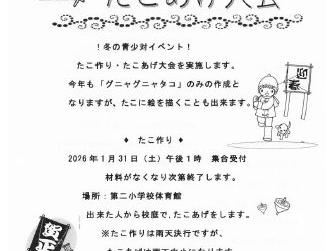 たこあげ大会
！冬の青少対イベント！
たこ作り・たこあげ大会を実施します。
今年も「グニャグニャタコ」のみの作成と
なりますが、たこに絵を描くことも出来ます。
迎春
♦ たこ作り ♦
2026年1月31日（土）午後1時　集合受付
材料がなくなり次第終了します。
場所：第二小学校体育館
出来た人から校庭で、たこあげをします。
※たこ作りは雨天決行ですが、
賀正